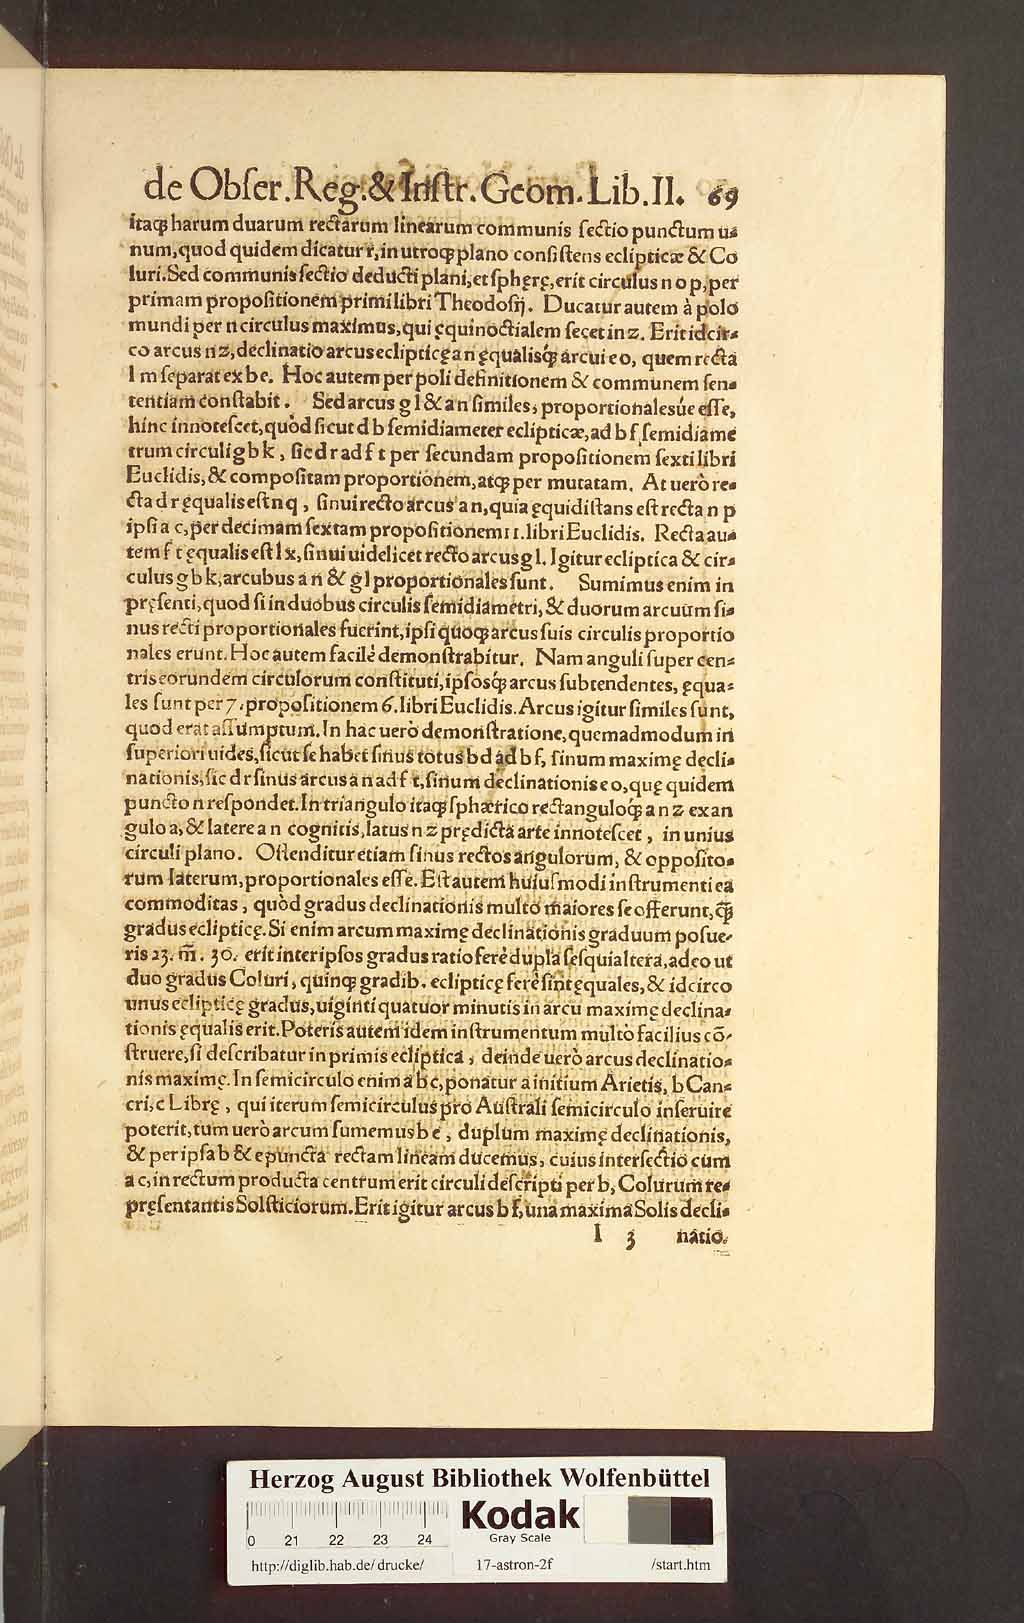 de Obſer. Reg. & Inſtr. Geom. Lib. II. 69
itaqȝ harum duarum rectarum linearum communis ſectio punctum u⸗
num, quod quidem dicatur r, in utroqȝ plano conſiſtens eclipticæ & Co
luri. Sed communis ſectio deducti plani, et ſphęrę, erit circulus n o p, per
primam propoſitionem primi libri Theodoſij. Ducatur autem à polo
mundi per n circulus maximus, qui ęquinoctialem ſecet in z. Erit idcir⸗
co arcus n z, declinatio arcus eclipticę a n ęqualisqȝ́ arcui e o, quem recta
l m ſeparat ex b e. Hoc autem per poli definitionem & communem ſen⸗
tentiam conſtabit. Sed arcus g l & a n ſimiles, proportionalesúe eſſe,
hinc innoteſcet, quòd ſicut d b ſemidiameter eclipticæ, ad b f ſemidiame
trum circuli g b k, ſic d r ad f t per ſecundam propoſitionem ſexti libri
Euclidis, & compoſitam proportionem, atqȝ per mutatam. At uerò re⸗
cta d r ęqualis eſt n q, ſinui recto arcus a n, quia ęquidiſtans eſt recta n p
ipſi a c, per decimam ſextam propoſitionem 11. libri Euclidis. Recta au⸗
tem f t ęqualis eſt l x, ſinui uidelicet recto arcus g l. Igitur ecliptica & cir⸗
culus g b k, arcubus a n & g l proportionales ſunt. Sumimus enim in
pręſenti, quod ſi in duobus circulis ſemidiametri, & duorum arcuum ſi⸗
nus recti proportionales fuerint, ipſi quoqȝ arcus ſuis circulis proportio
nales erunt. Hoc autem facilè demonſtrabitur. Nam anguli ſuper cen⸗
tris eorundem circulorum conſtituti, ipſosqȝ́ arcus ſubtendentes, ęqua⸗
les ſunt per 7. propoſitionem 6. libri Euclidis. Arcus igitur ſimiles ſunt,
quod erat aſſumptum. In hac uerò demonſtratione, quemadmodum in
ſuperiori uides, ſicut ſe habet ſinus totus b d ad b f, ſinum maximę decli⸗
nationis, ſic d r ſinus arcus a n ad f t, ſinum declinationis e o, quę quidem
puncto n reſpondet. In triangulo itaqȝ ſphærico rectanguloqȝ́ a n z ex an
gulo a, & latere a n cognitis, latus n z prędicta arte innoteſcet, in unius
circuli plano. Oſtenditur etiam ſinus rectos angulorum, & oppoſito⸗
rum laterum, proportionales eſſe. Eſt autem huiuſmodi inſtrumenti ea
commoditas, quòd gradus declinationis multò maiores ſe offerunt, q̃ȝ
gradus eclipticę. Si enim arcum maximę declinationis graduum poſue⸗
ris 23. m̃. 30. erit inter ipſos gradus ratio ferè dupla ſeſquialtera, adeo ut
duo gradus Coluri, quinqȝ gradib. eclipticę ferè ſint ęquales, & idcirco
unus eclipticę gradus, uiginti quatuor minutis in arcu maximę declina⸗
tionis ęqualis erit. Poteris autem idem inſtrumentum multò facilius cõ⸗
ſtruere, ſi deſcribatur in primis ecliptica, deinde uerò arcus declinatio⸗
nis maximę. In ſemicirculo enim a b c, ponatur a initium Arietis, b Can⸗
cri, c Librę, qui iterum ſemicirculus pro Auſtrali ſemicirculo inſeruire
poterit, tum uerò arcum ſumemus b e, duplum maximę declinationis,
& per ipſa b & e puncta rectam lineam ducemus, cuius interſectio cum
a c, in rectum producta centrum erit circuli deſcripti per b, Colurum re⸗
pręſentantis Solſticiorum. Erit igitur arcus b f, una maxima Solis decli⸗
I 3 natio.
Herzog August Bibliothek Wolfenbüttel
0 21 22 23 24
Kodak
Gray Scale
http://diglib.hab.de/drucke/ 17-astron-2f /start.htm